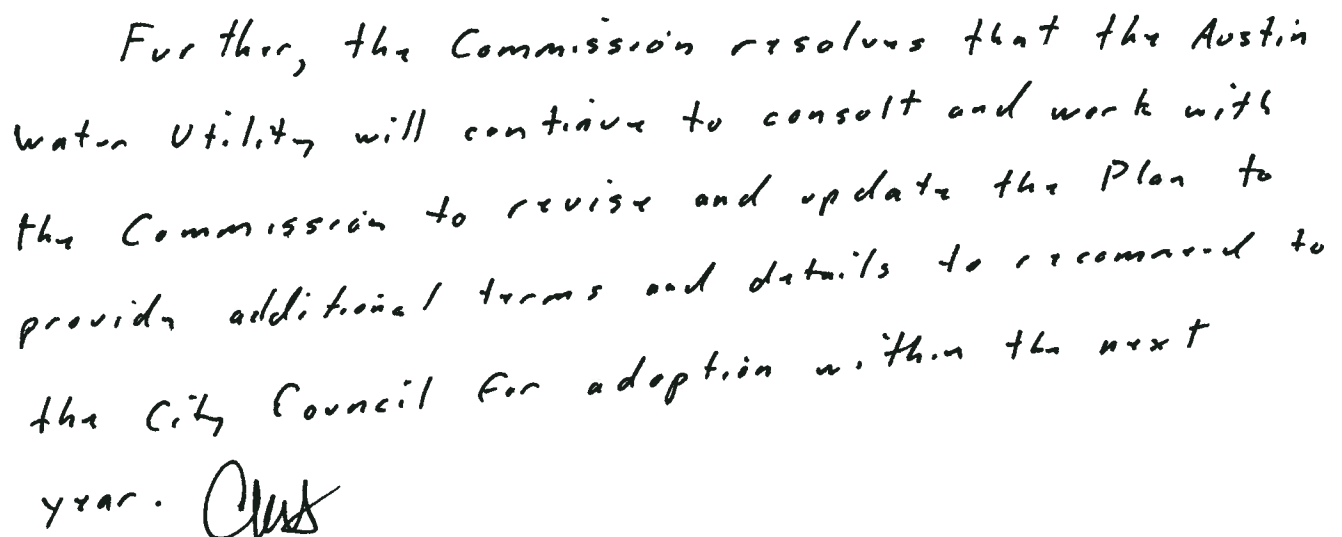 Further, the Commission resolves that the Austin
Water Utility will continue to consult and work with
the Commission to revise and update the Plan to
provide additional terms and details to recommend to
the City Council for adoption within the next
year.